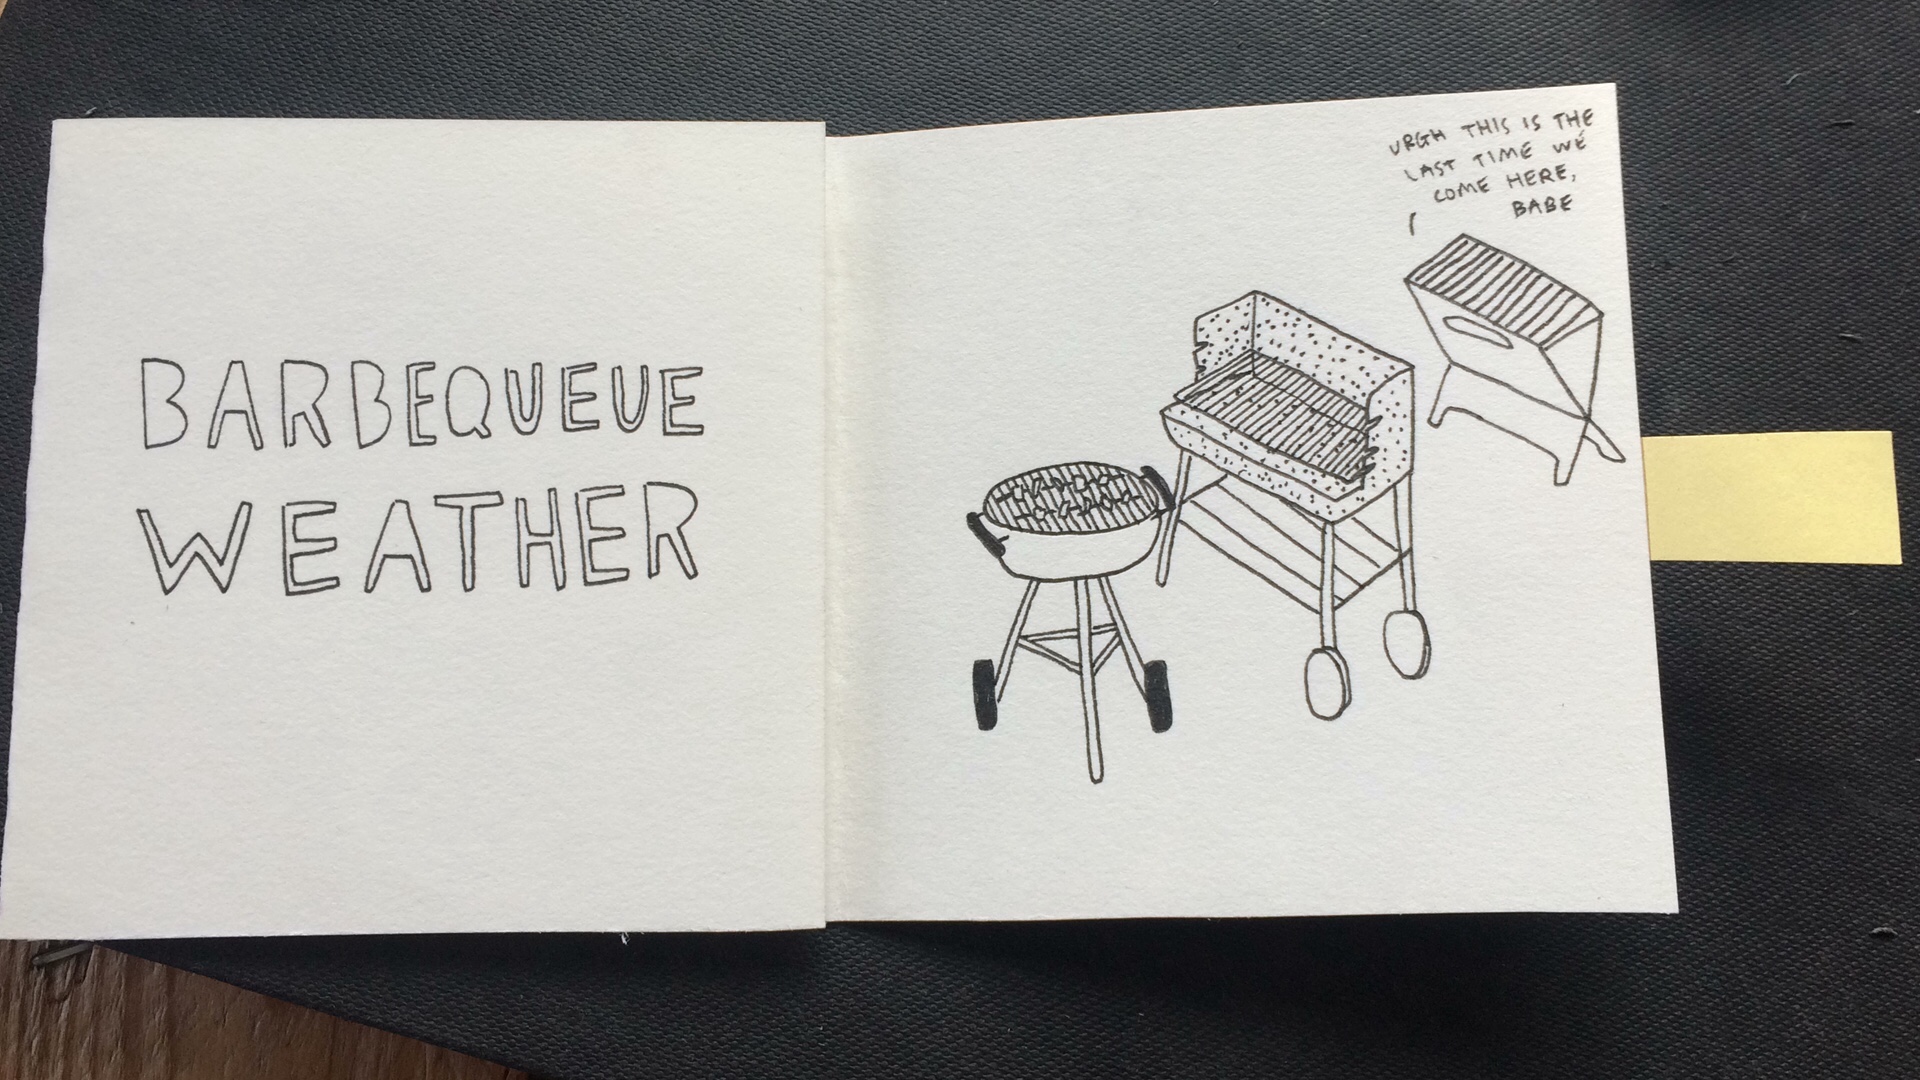 BARBEQUEUE
WEATHER
URGH THIS IS THE
LAST TIME WE
COME HERE,
BABE